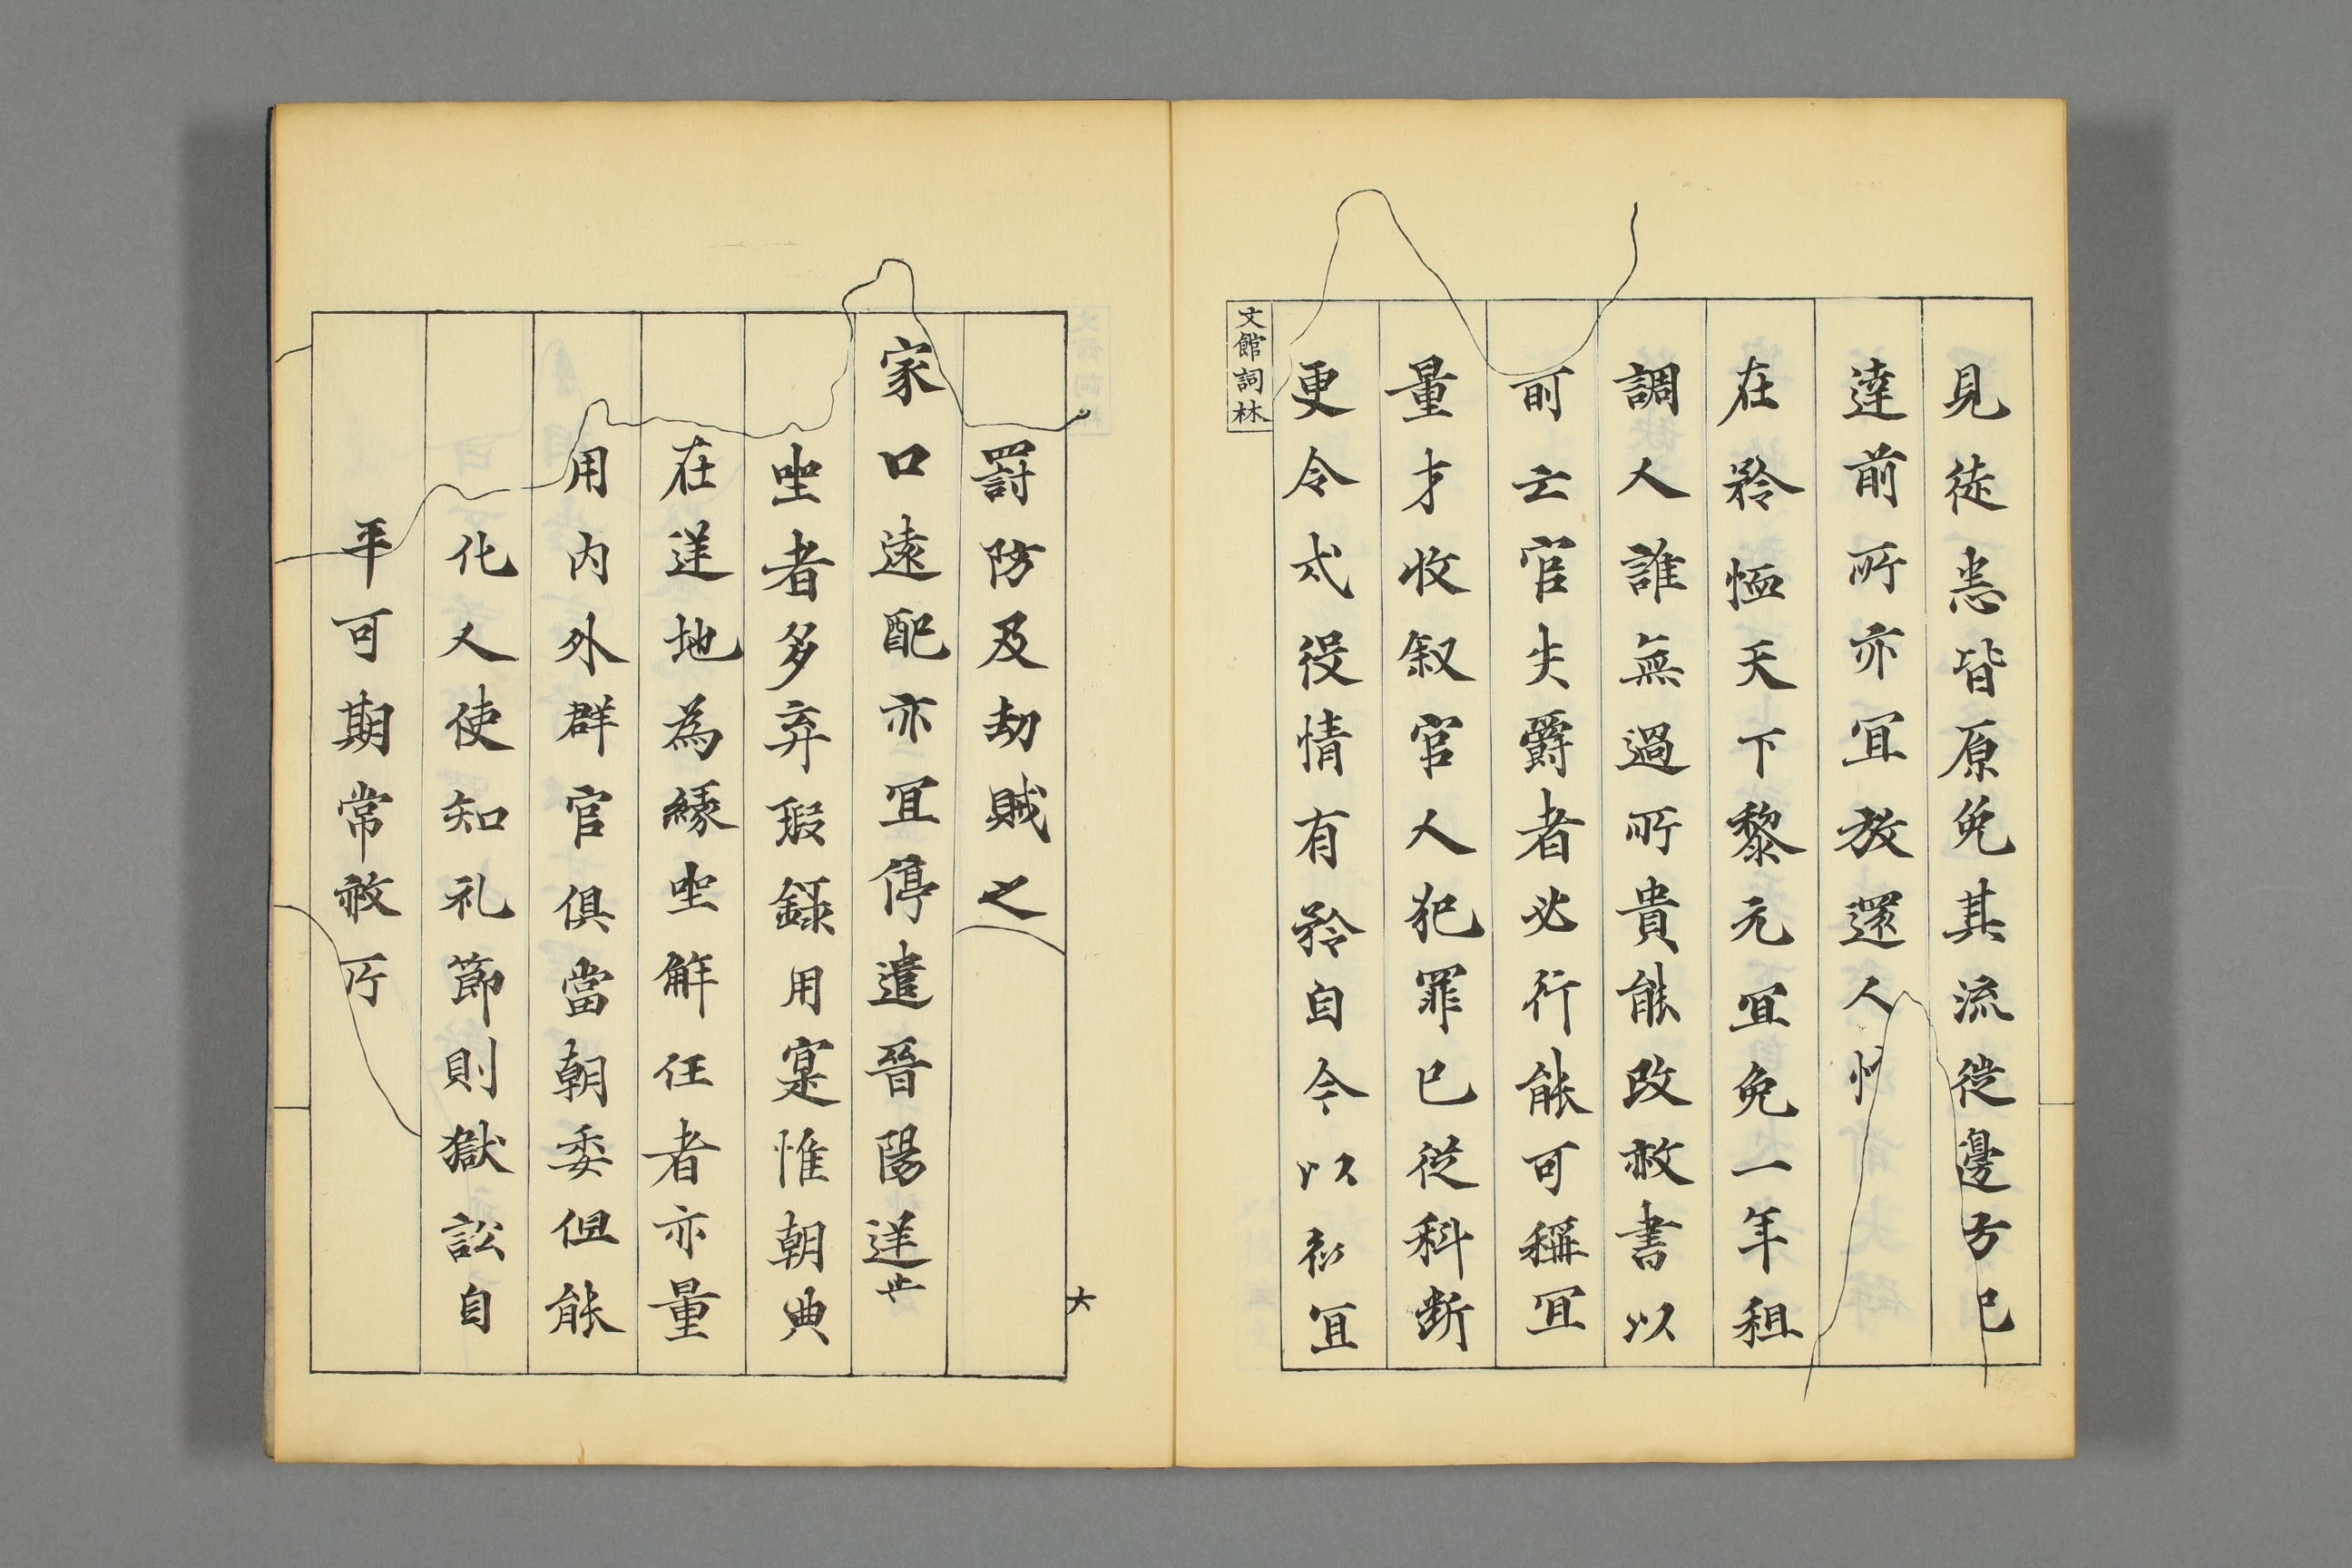 見徒悉皆原免其流徙邊方已
達前所亦宜放還人
在矜恤天下黎元宜免一年租
調人誰無過所貴能改赦書以
前亡官失爵者必行能可稱宜
量才收叙官人犯罪已從科断
更令式役情有矜自今以宜
文館詞林
六
罰防及劫賊之
家口遠配亦宜停遣晉陽逆
坐者多弃瑕録用寔惟朝典
在逆地為緣坐解任者亦量
用内外群官俱當朝委但能
化人使知礼節則獄訟自
平可期常赦